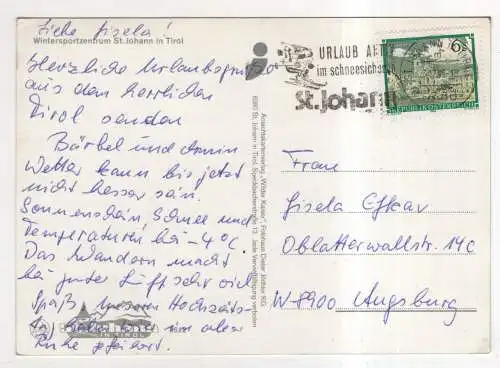 Liebe Gisela!
Wintersportzentrum St. Johann in Tirol
Herzliche Urlaubsgrüße
aus dem herrlichen
Tirol senden
Bärbel und Armin
Wetter kann bis jetzt
nicht besser sein.
Sonnenschein, Schnee und
Temperaturen bei -4°C.
Das Wandern macht
bei guter Luft sehr viel
Spaß. Unseren Hochzeits-
haben wir in aller
Ruhe gefeiert.
IN TIROL
Ansichtskartenverlag „Wilder Kaiser“, Fotohaus Dieter Jöchler KG,
6380 St. Johann in Tirol, Speckbacherstraße 13. Jede Vervielfältigung verboten
URLAUB
im schneesicheren
St. Johann
S 6
REPUBLIK ÖSTERREICH
Frau
Gisela
Oblatterwallstr. 14c
W-8900 Augsburg